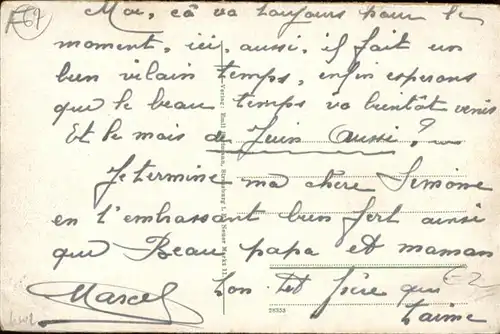 67
Moi, cà va toujours pour le
moment, ici, aussi, il fait un
bien vilain temps, enfin esperons
que le beau temps va bientôt venir
Et le mois de Juin Aussi?
Je termine ma chère Simone
en t'embrassant bien fort ainsi
que Beau papa et maman
Ton tit frère qui
t'aime
Marcel
28355